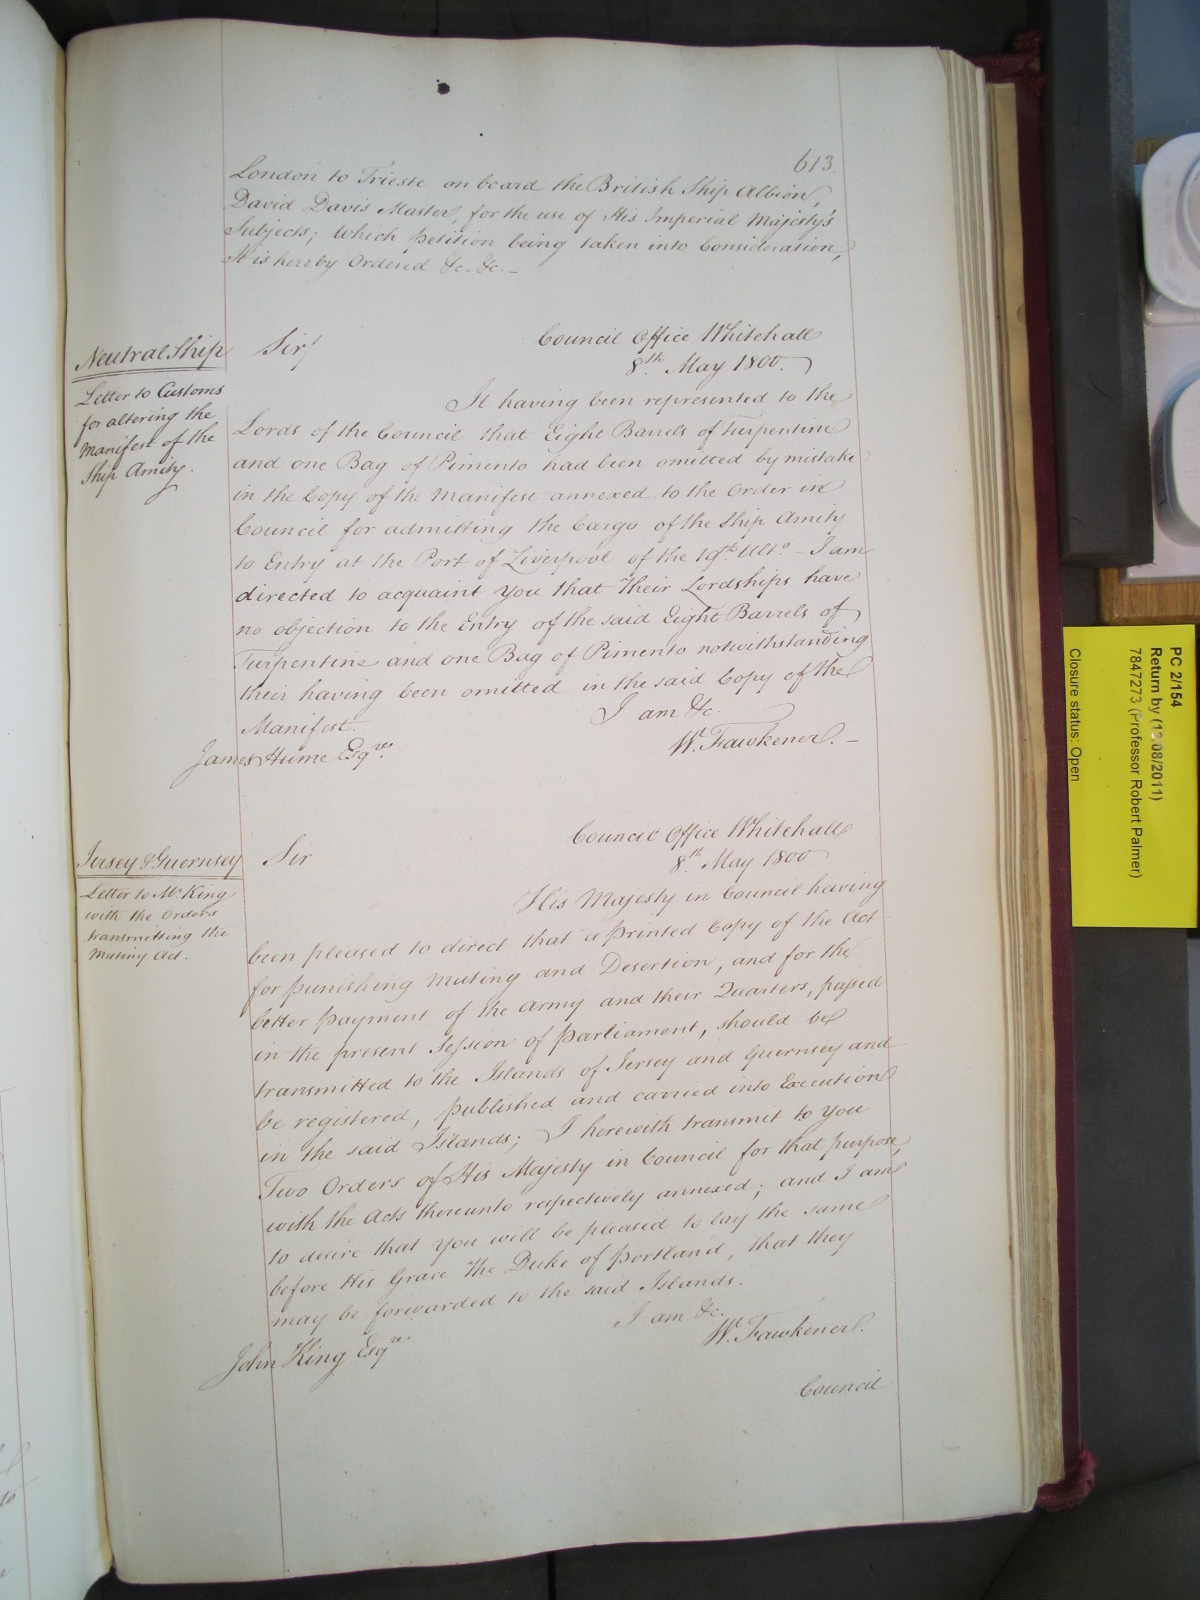 613.
London to Trieste on board the British Ship Albion,
David Davis Master, for the use of His Imperial Majesty's
Subjects; Which petition being taken into Consideration,
It is hereby Ordered &c. &c. –
Neutral Ship
Letter to Customs
for altering the
Manifest of the
Ship Amity.
Sir/
Council Office Whitehall
8th May 1800.
It having been represented to the
Lords of the Council that Eight Barrels of Turpentine
and one Bag of Pimento had been omitted by mistake
in the Copy of the Manifest annexed to the Order in
Council for admitting the Cargo of the Ship Amity
to Entry at the Port of Liverpool of the 19th Ulto. – I am
directed to acquaint You that Their Lordships have
no objection to the Entry of the said Eight Barrels of
Turpentine and one Bag of Pimento notwithstanding
their having been omitted in the said Copy of the
Manifest.
I am &c.
W. Fawkener. –
James Hume Esqre.
Jersey & Guernsey
Letter to Mr. King
with the Orders
transmitting the
Mutiny Act.
Sir
Council Office Whitehall
8th May 1800
His Majesty in Council having
been pleased to direct that a Printed Copy of the Act
for punishing Mutiny and Desertion, and for the
better payment of the Army and their Quarters, passed
in the present Session of Parliament, should be
transmitted to the Islands of Jersey and Guernsey and
be registered, published and carried into Execution
in the said Islands; I herewith transmit to You
Two Orders of His Majesty in Council for that purpose,
with the Acts thereunto respectively annexed; and I am
to desire that you will be pleased to lay the same
before His Grace The Duke of Portland, that they
may be forwarded to the said Islands.
I am &c.
W. Fawkener.
John King Esqre.
Council
PC 2/154
Return by (1 08/2011)
7847273 (Professor Robert Palmer)
Closure status: Open